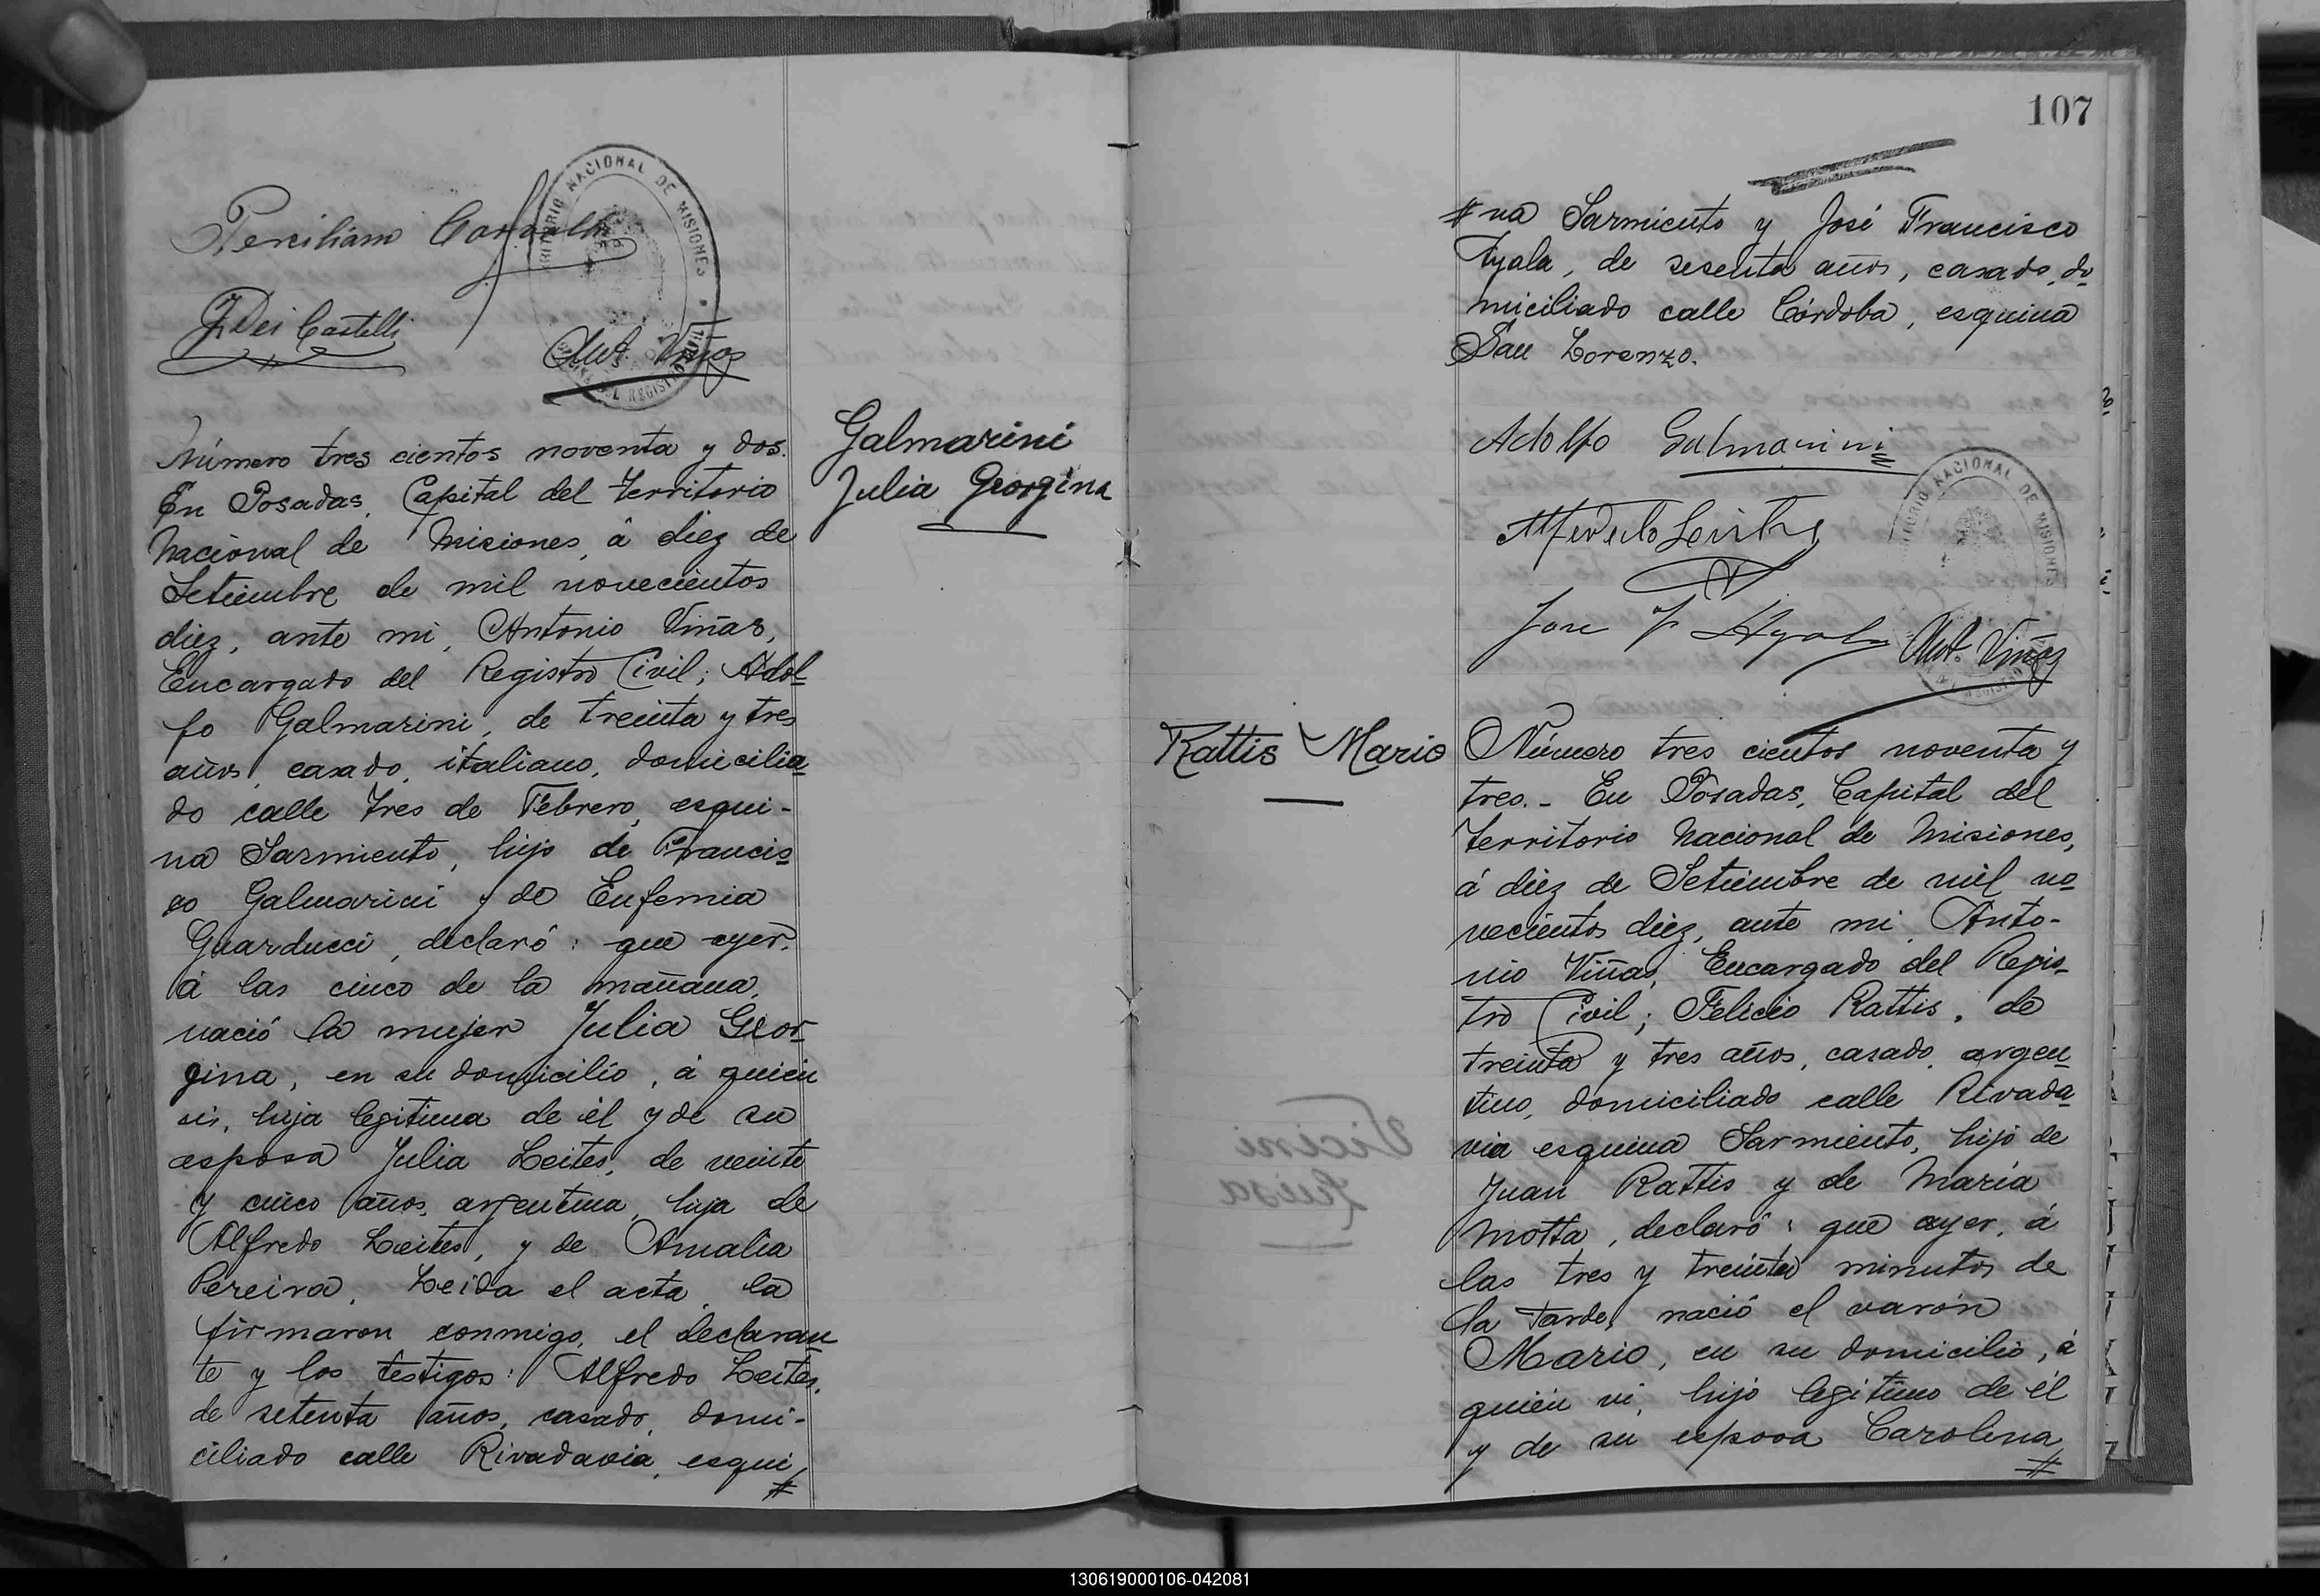 Perciliano Carvalho
TERRITORIO NACIONAL DE MISIONES
OFICINA DEL REGISTRO CIVIL
J. Dei Castelli
Ant. Viñas
Número tres cientos noventa y dos.
En Posadas, Capital del Territorio
Nacional de Misiones, á diez de
Setiembre de mil novecientos
diez, ante mi, Antonio Viñas,
Encargado del Registro Civil; Adol
fo Galmarini, de treinta y tres
años, casado, italiano, domicilia
do calle Tres de Febrero, esqui-
na Sarmiento, hijo de Francis
co Galmarini y de Eufemia
Guarducci, declaró: que ayer,
á las cinco de la mañana,
nació la mujer Julia Geor
gina, en su domicilio, á quien
vi, hija legitima de él y de su
esposa Julia Leites, de veinte
y cinco años, argentina, hija de
Alfredo Leites, y de Amalia
Pereira. Leida el acta, la
firmaron conmigo, el declaran
te y los testigos: Alfredo Leites,
de setenta años, casado, domi-
ciliado calle Rivadavia, esqui
#
Galmarini
Julia Georgina
107
# na Sarmiento y José Francisco
Ayala, de sesenta años, casado, do
miciliado calle Córdoba, esquina
San Lorenzo.
Adolfo Galmarini
Alfredo Leites
Jose F Ayala
TERRITORIO NACIONAL DE MISIONES
Ant. Viñas
Rattis Mario
Número tres cientos noventa y
tres.- En Posadas, Capital del
Territorio Nacional de Misiones,
á diez de Setiembre de mil no
vecientos diez, ante mi, Anto-
nio Viñas, Encargado del Regis-
tro Civil; Felicio Rattis, de
treinta y tres años, casado, argen
tino, domiciliado calle Rivada
via esquina Sarmiento, hijo de
Juan Rattis y de María
Motta, declaró: que ayer, á
las tres y treinta minutos de
la tarde, nació el varón
Mario, en su domicilio, á
quién vi, hijo legitimo de él
y de su esposa Carolina
#
130619000106-042081